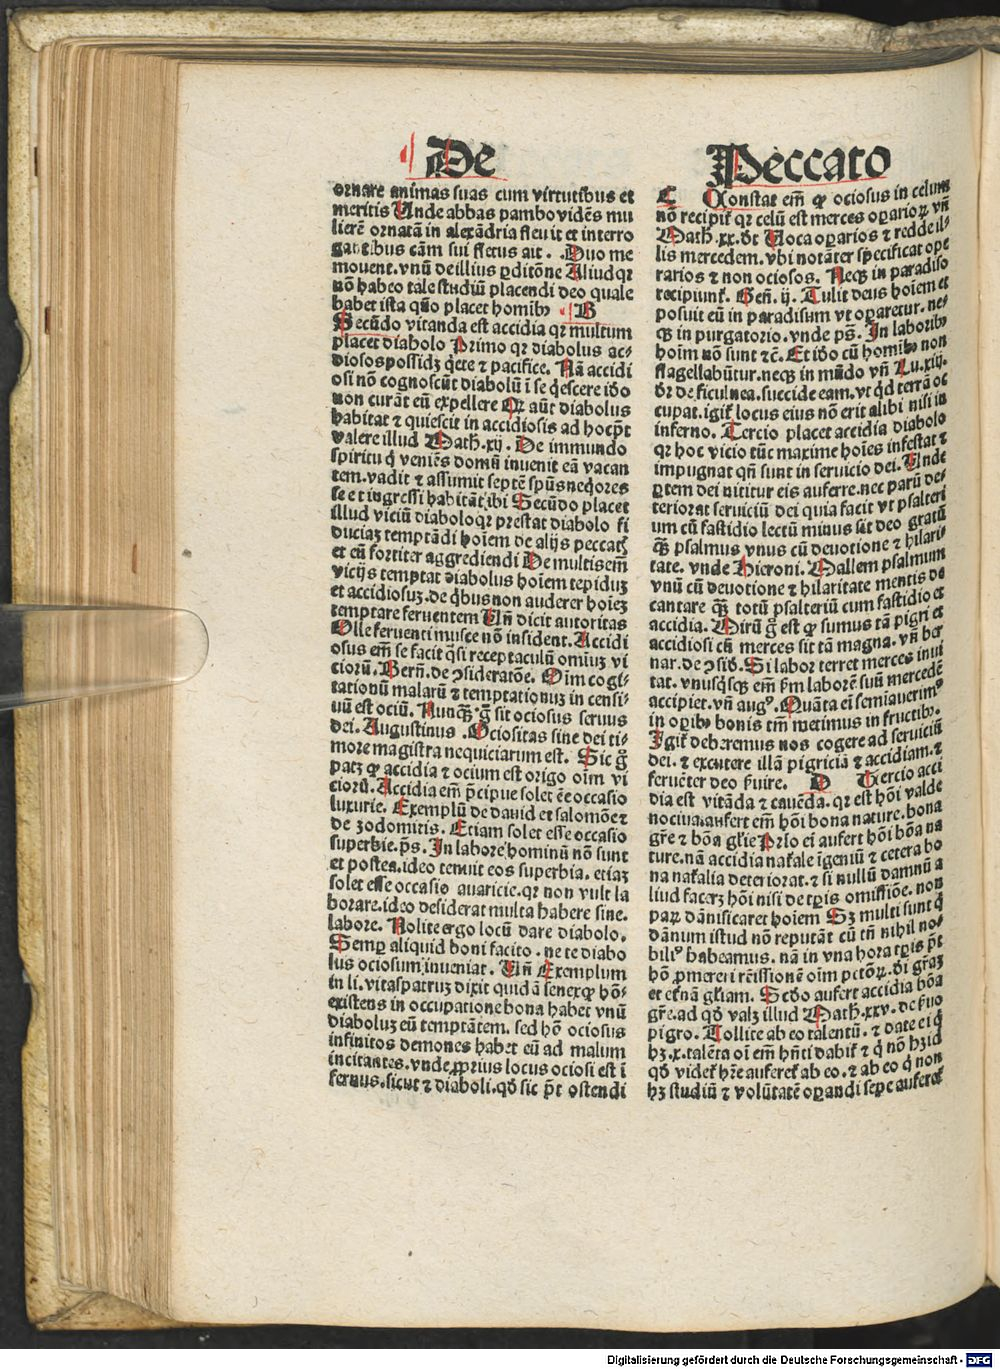 De Peccato
ornare animas suas cum virtutibus et
meritis Unde abbas pambo vidẽs mu
lierẽ ornatã in alexãdria fleuit et interro
gantibus cãm sui fletus ait. Duo me
mouent. vnũ de illius ꝑditõne Aliud qꝛ
nõ habeo tale studiũ placendi deo quale
habet ista qño placet homĩbꝰ B
Secũdo vitanda est accidia qꝛ multum
placet diabolo Primo qꝛ diabolus ac-
diosos possidꝫ q̃ete ⁊ pacifice. Nã accidi
osi nõ cognoscũt diabolũ ĩ se q̃escere iđo
non curãt eũ expellere Qꝛ aũt diabolus
habitat ⁊ quiescit in accidiosis ad hoc p̃t
valere illud Math. xij. De immundo
spiritu q̃ veniẽs domũ inuenit eã vacan
tem. vadit ⁊ assumit septẽ spũs neq̃ores
se et ingressi habitãt ibi Secũdo placet
illud viciũ diabolo qꝛ prestat diabolo fi
duciaꝫ temptãdi hoiem de alijs peccatꝭ
et eũ fortiter aggrediendi De multis em̃
vicijs temptat diabolus hoiem tepiduꝫ
et accidiosuꝫ. de q̃bus non auderet hoieꝫ
temptare feruentem Uñ dicit autoritas
Olle feruenti musce nõ insident. Accidi
osus em̃ se facit q̃si receptaculũ omniuꝫ vi
ciorũ. Bern̄. de ꝯsideratõe. Oim cogi-
tationũ malarũ ⁊ temptationuꝫ in censi-
uũ est ociũ. Nunqꝫ g̃ sit ociosus seruus
dei. Augustinus. Ociositas sine dei ti-
more magistra nequiciarum est. Sic g̃
patꝫ qꝫ accidia ⁊ ocium est origo oim vi
ciorũ. Accidia em̃ p̃cipue solet eẽ occasio
luxurie. Exemplũ de dauid et salomõe ⁊
de zodomitis. Etiam solet esse occasio
superbie. p̃s. In labore hominũ nõ sunt
et postea. ideo tenuit eos superbia. etiaꝫ
solet esse occasio auaricie. qꝛ non vult la
borare. ideo desiderat multa habere sine.
labore. Nolite ergo locũ dare diabolo.
Semꝑ aliquid boni facito. ne te diabo
lus ociosum inueniat. Uñ Exemplum
in li. vitaspatruꝫ dixit quidã senex qꝫ hõ-
existens in occupatione bona habet vnũ
diaboluꝫ eũ temptãtem. sed hõ ociosus
infinitos demones habet eũ ad malum
incitantes. vnde ꝓprius locus ociosi est ĩ
fernus. sicut ⁊ diaboli. qđ sic p̃t ostendi
C Constat em̃ qꝫ ociosus in celum
nõ recipit᷑ qꝛ celũ est merces oꝑarioꝝ vñ
Math. xx. đt Uoca oꝑarios ⁊ redde il-
lis mercedem. vbi notãter specificat ope
rarios ⁊ non ociosos. Neqꝫ in paradiso
recipiunt᷑. Geñ. ij. Tulit deus hoiem et
posuit eũ in paradisum vt oꝑaretur. ne-
qꝫ in purgatorio. vnde ps̃. In laboribꝰ
hoim nõ sunt ⁊c̃. Et iđo cũ homĩbꝰ non
flagellabũtur. neqꝫ in mũdo vñ Lu. xiij.
đꝛ de ficulnea. succide eam. vt q̃d terrã oc
cupat. igit᷑ locus eius nõ erit alibi nisi in
inferno. Tercio placet accidia diabolo
qꝛ hoc vicio tũc maxime hoies infestat ⁊
impugnat qñ sunt in seruicio dei. Unde
ꝑtem dei nititur eis auferre. nec parũ de-
teriorat seruiciũ dei quia facit vt psalteri
um cũ fastidio lectũ minus sit deo gratũ
qꝫ psalmus vnus cũ deuotione ⁊ hilari-
tate. vnde Hieroni. Mallem psalmum
vnũ cũ deuotione ⁊ hilaritate mentis de
cantare qꝫ totũ psalteriũ cum fastidio et
accidia. Mirũ g̃ est qꝫ sumus tã pigri et
accidiosi cũ merces sit tã magna. vñ ber
nar. de ꝯsiđ. Si labor terret merces inui
tat. vnusq̃sqꝫ em̃ ẜm laborẽ suũ mercedẽ
accipiet. vñ augꝰ. Quãta em̃ semiauerimꝰ
in oꝑibꝰ bonis tm̃ metimus in fructibꝰ.
Igit᷑ deberemus nos cogere ad seruiciũ
dei. ⁊ excutere illã pigriciã ⁊ accidiam. ⁊
feruẽter deo ẜuire. D Tercio acci
dia est vitãda ⁊ cauẽda. qꝛ est hõi valde
nociua. aufert em̃ hõi bona nature. bona
gr̃e ⁊ bõa gl̃ie Prĩo em̃ aufert hõi bõa na
ture. nã accidia nat᷑ale ĩgeniũ ⁊ cetera bo
na nat᷑alia deteriorat. ⁊ si nullũ damnũ a
liud faceꝫ hõi nisi de tꝑis omissiõe. non
paꝝ dãnificaret hoiem Sꝫ multi sunt q̃
dãnum istud nõ reputãt cũ tñ nihil no-
bilꝰ habeamus. nã in vna hora tꝑis p̃t
hõ ꝓmereri rẽissionẽ oim pctõꝝ. đi gr̃aꝫ
et et᷑nã gl̃iam. Scđo aufert accidia bõa
gr̃e. ad qđ valꝫ illud Math. xxv. de ẜuo
pigro. Tollite ab eo talentũ. ⁊ date ei q̃
hꝫ. x. talẽta oĩ em̃ hñti dabit᷑ ⁊ q̃ nõ hꝫ id
qđ videt᷑ hr̃e auferet᷑ ab eo. ⁊ ab eo q̃ non
hꝫ studiũ ⁊ volũtatẽ oꝑandi sepe auferet᷑
Digitalisierung gefördert durch die Deutsche Forschungsgemeinschaft - DFG